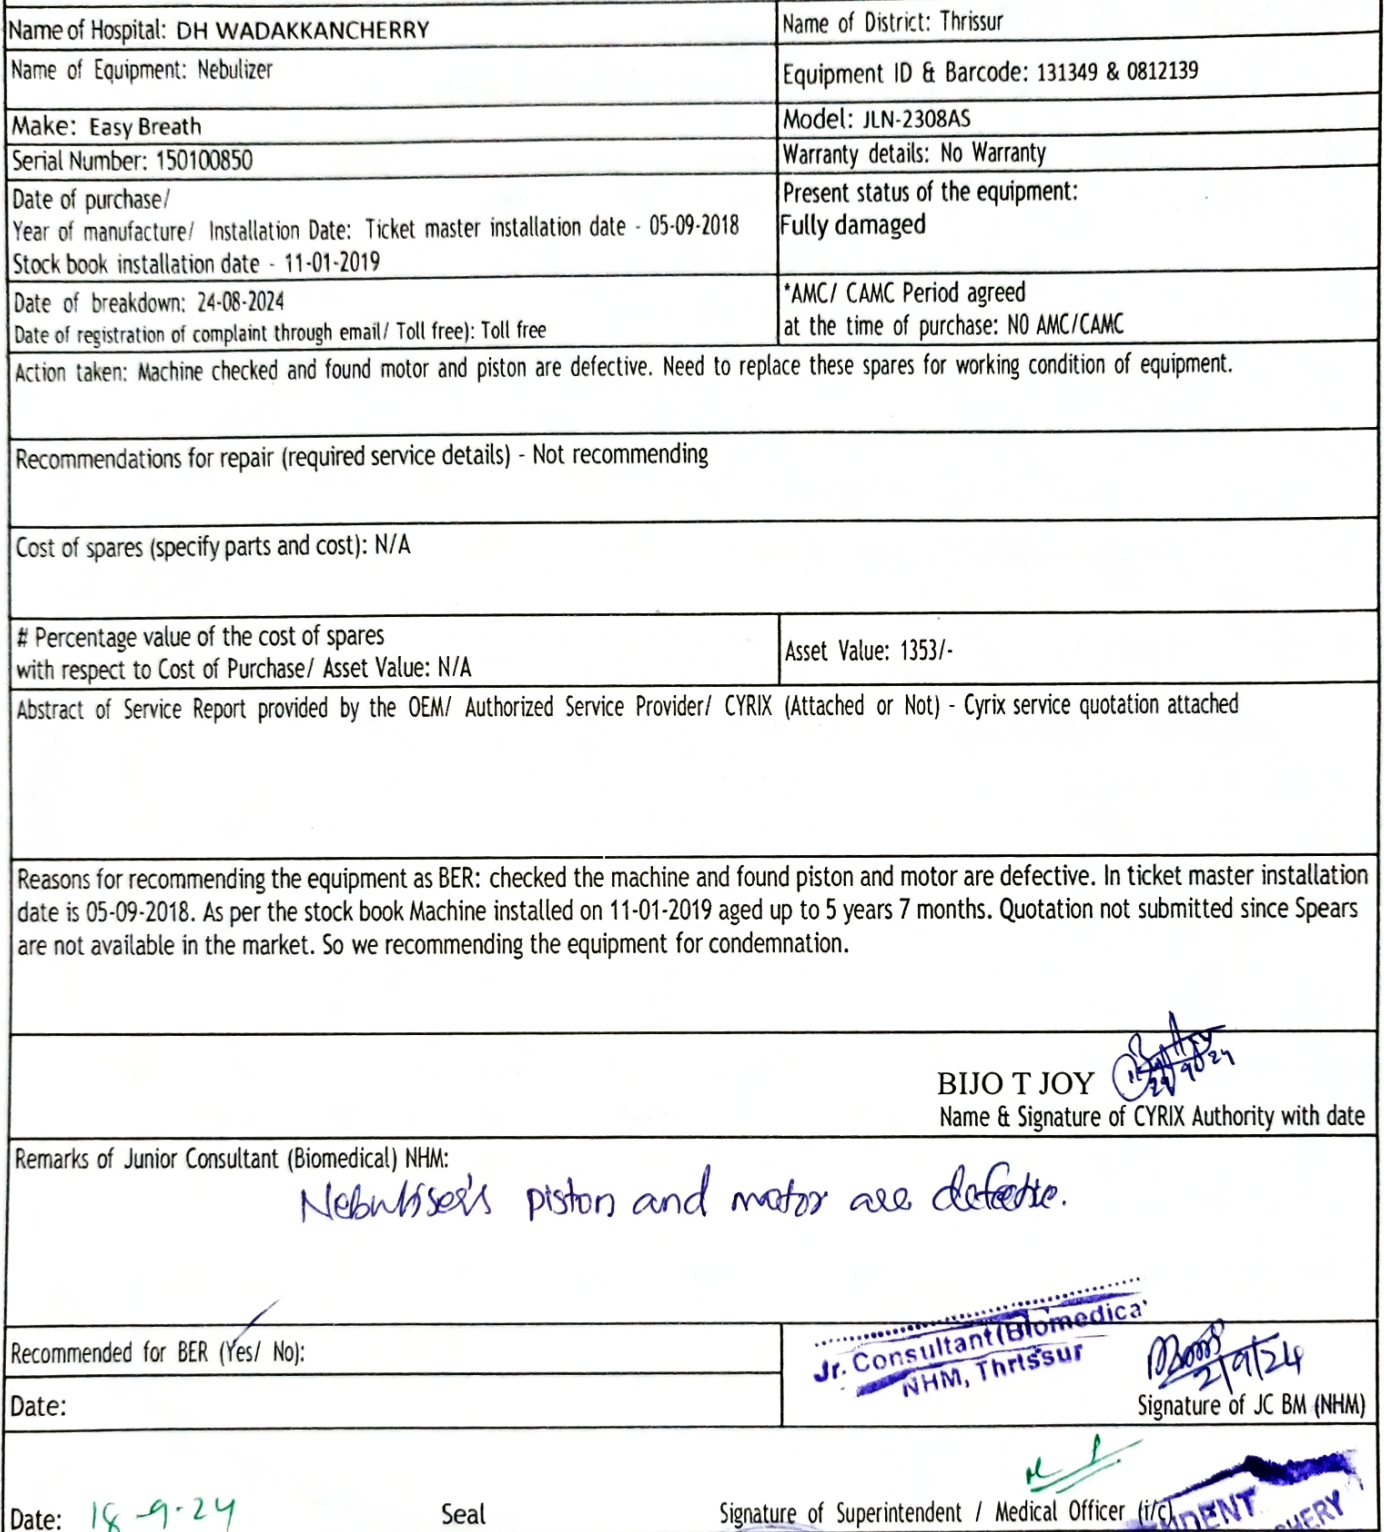 Name of Hospital: DH WADAKKANCHERRY
Name of District: Thrissur
Name of Equipment: Nebulizer
Equipment ID & Barcode: 131349 & 0812139
Make: Easy Breath
Model: JLN-2308AS
Serial Number: 150100850
Warranty details: No Warranty
Date of purchase/
Year of manufacture/ Installation Date: Ticket master installation date - 05-09-2018
Stock book installation date - 11-01-2019
Present status of the equipment:
Fully damaged
Date of breakdown: 24-08-2024
Date of registration of complaint through email/ Toll free): Toll free
*AMC/ CAMC Period agreed
at the time of purchase: NO AMC/CAMC
Action taken: Machine checked and found motor and piston are defective. Need to replace these spares for working condition of equipment.
Recommendations for repair (required service details) - Not recommending
Cost of spares (specify parts and cost): N/A
# Percentage value of the cost of spares
with respect to Cost of Purchase/ Asset Value: N/A
Asset Value: 1353/-
Abstract of Service Report provided by the OEM/ Authorized Service Provider/ CYRIX (Attached or Not) - Cyrix service quotation attached
Reasons for recommending the equipment as BER: checked the machine and found piston and motor are defective. In ticket master installation
date is 05-09-2018. As per the stock book Machine installed on 11-01-2019 aged up to 5 years 7 months. Quotation not submitted since Spears
are not available in the market. So we recommending the equipment for condemnation.
BIJO T JOY
Name & Signature of CYRIX Authority with date
Remarks of Junior Consultant (Biomedical) NHM:
Nebuliser's piston and motor are defective.
Recommended for BER (Yes/ No):
Jr. Consultant (Biomedica
NHM, Thrissur
2/9/24
Signature of JC BM (NHM)
Date:
Date: 18-9-24
Seal
Signature of Superintendent / Medical Officer (i/c)